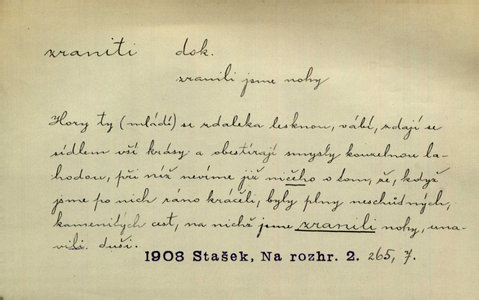 zraniti dok.
zranili jsme nohy
Hory ty (mládí) se zdaleka lesknou, vábí, zdají se
sídlem vší krásy a obestírají smysly kouzelnou la-
hodou, při níž nevíme již ničeho o tom, že, když
jsme po nich ráno kráčeli, byly plny neschůdných,
kamenitých cest, na nichž jsme zranili nohy, una-
vili duši.
1908 Stašek, Na rozhr. 2. 265, 7.